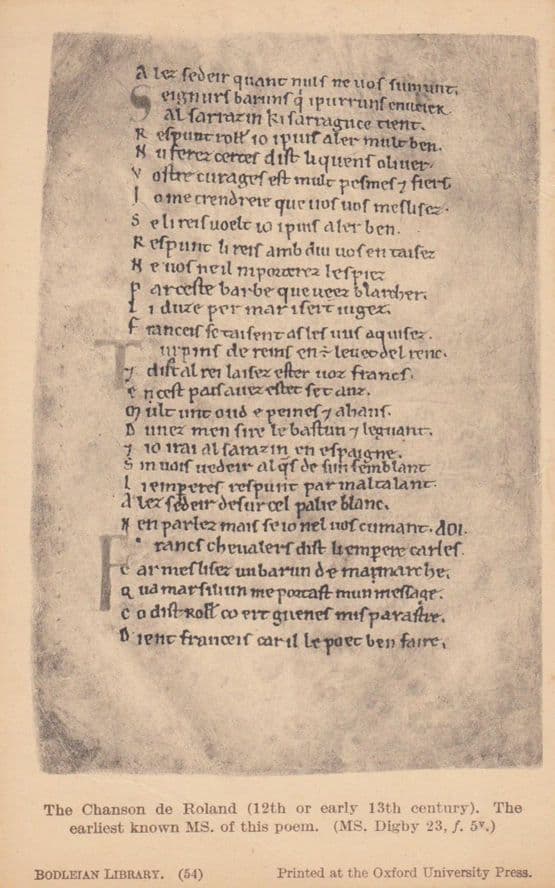 Alez sedeir quant nuls ne vos sumunt.
Seignurs baruns q̉ ipurruns enveier.
Al sarrazin ki sarraguce tient.
Respunt roll̄ io ipuis aler mult ben.
Nu ferez certes dist liquens oliver.
Vostre curages est mult pesmes ⁊ fiers
Io me crendreie que vos vos meslisez.
Se li reis voelt io ipuis aler ben.
Respunt li reis ambdui vos en taisez
Ne vos ne il niporterez les piez
Par ceste barbe que veez blancher.
Li duze per mar i sert iugez.
Franceis se taisent as les vus aquisez.
Turpins de reins en ÷ levet del renc.
⁊ dist al rei laisez ester voz francs.
En cest pais avez estet set anz.
Mult unt oud e peines ⁊ ahans.
Dunez men sire le bastun ⁊ leguant.
⁊ io irai al sarazin en espaigne.
Sin vois vedeir alq̄s de sun semblant
Li emperes respunt par maltalant.
Alez sedeir desur cel palie blanc.
Nen parlez mais se io nel vos cumant. AOI.
Francs chevalers dist li empere carles.
Car meslisez un barun de ma marche.
Qua marsiliun me portast mun message.
Co dist Roll̄ co ert guenes mis parastre.
Dient franceis car il le poet ben faire.
The Chanson de Roland (12th or early 13th century). The
earliest known MS. of this poem. (MS. Digby 23, f. 5ᵛ.)
BODLEIAN LIBRARY. (54) Printed at the Oxford University Press.